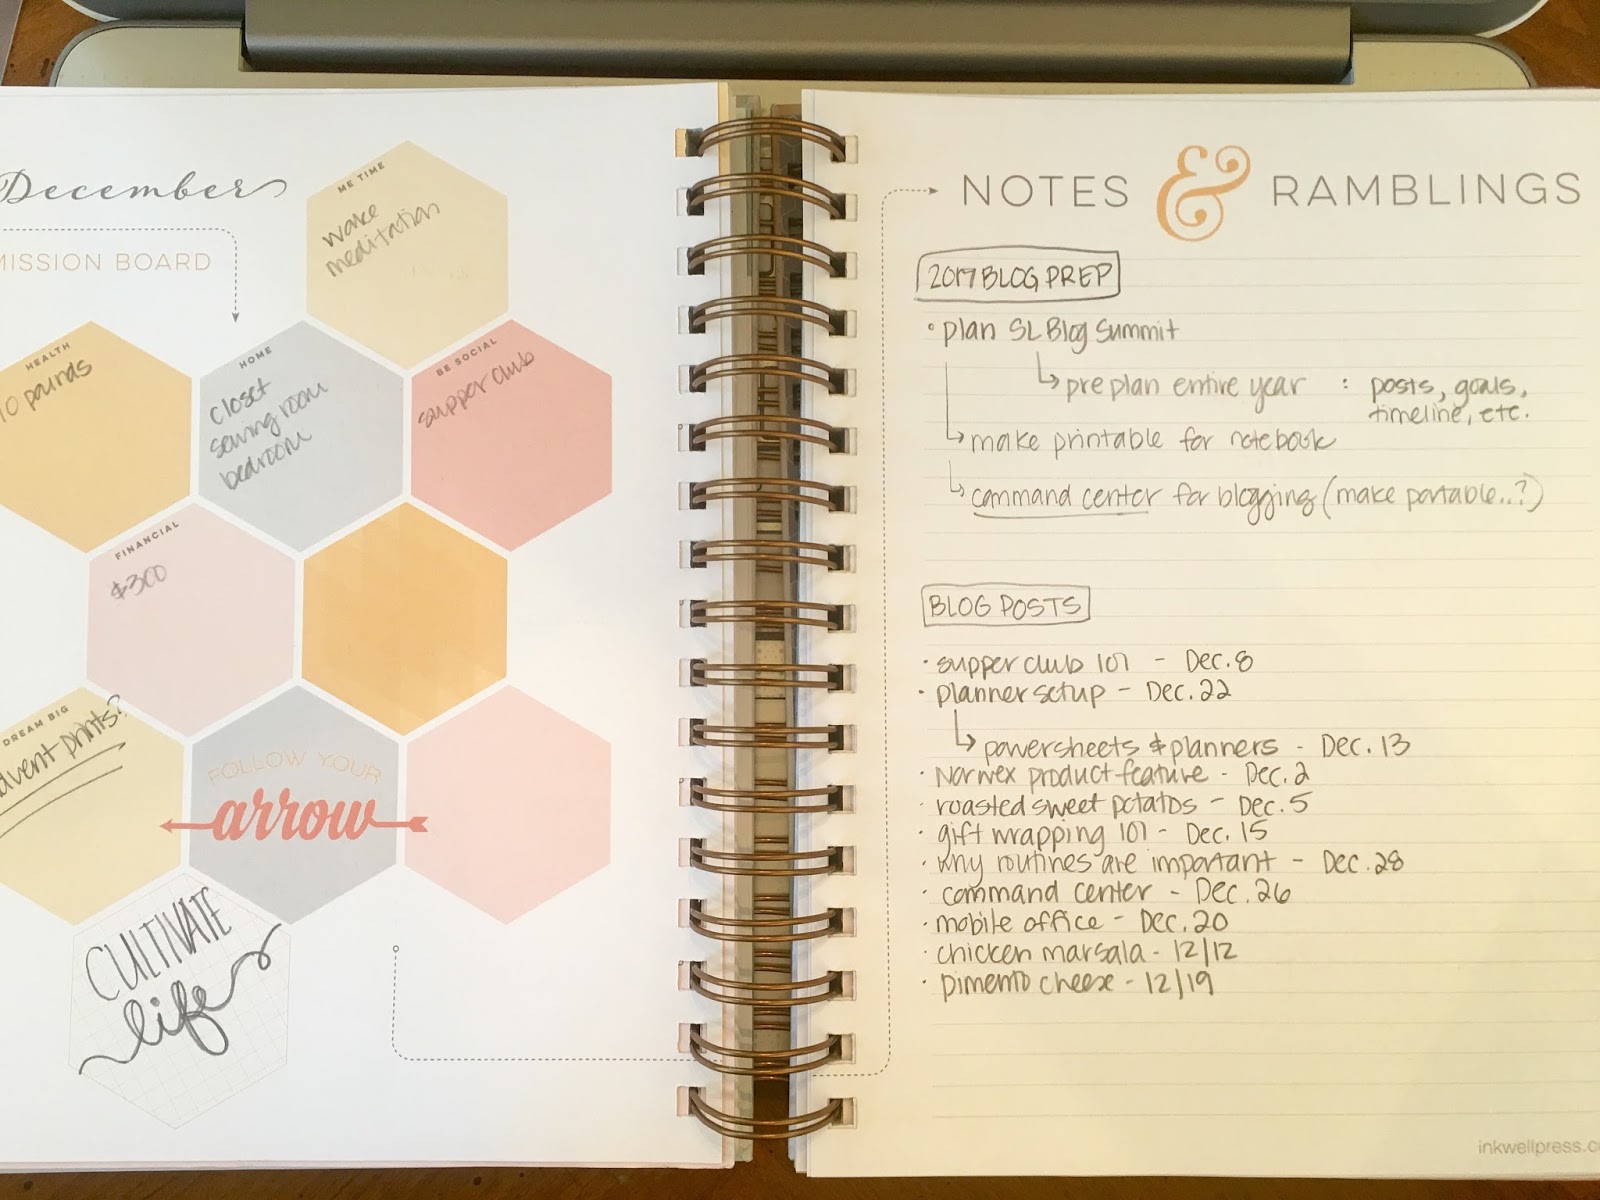 December
MISSION BOARD
ME TIME
wake
meditation
HEALTH
10 pounds
HOME
closet
sewing room
bedroom
BE SOCIAL
supper club
FINANCIAL
$300
DREAM BIG
advent prints?
FOLLOW YOUR
arrow
CULTIVATE
life
NOTES & RAMBLINGS
2017 BLOG PREP
• plan SL Blog Summit
↳ pre plan entire year : posts, goals,
timeline, etc.
↳ make printable for notebook
↳ command center for blogging (make portable..?)
BLOG POSTS
· supper club 101 - Dec. 8
· planner setup - Dec. 22
↳ powersheets & planners - Dec. 13
· Norwex product feature - Dec. 2
· roasted sweet potatos - Dec. 5
· gift wrapping 101 - Dec. 15
· why routines are important - Dec. 28
· command center - Dec. 26
· mobile office - Dec. 20
· chicken marsala - 12/12
· pimento cheese - 12/19
inkwellpress.co